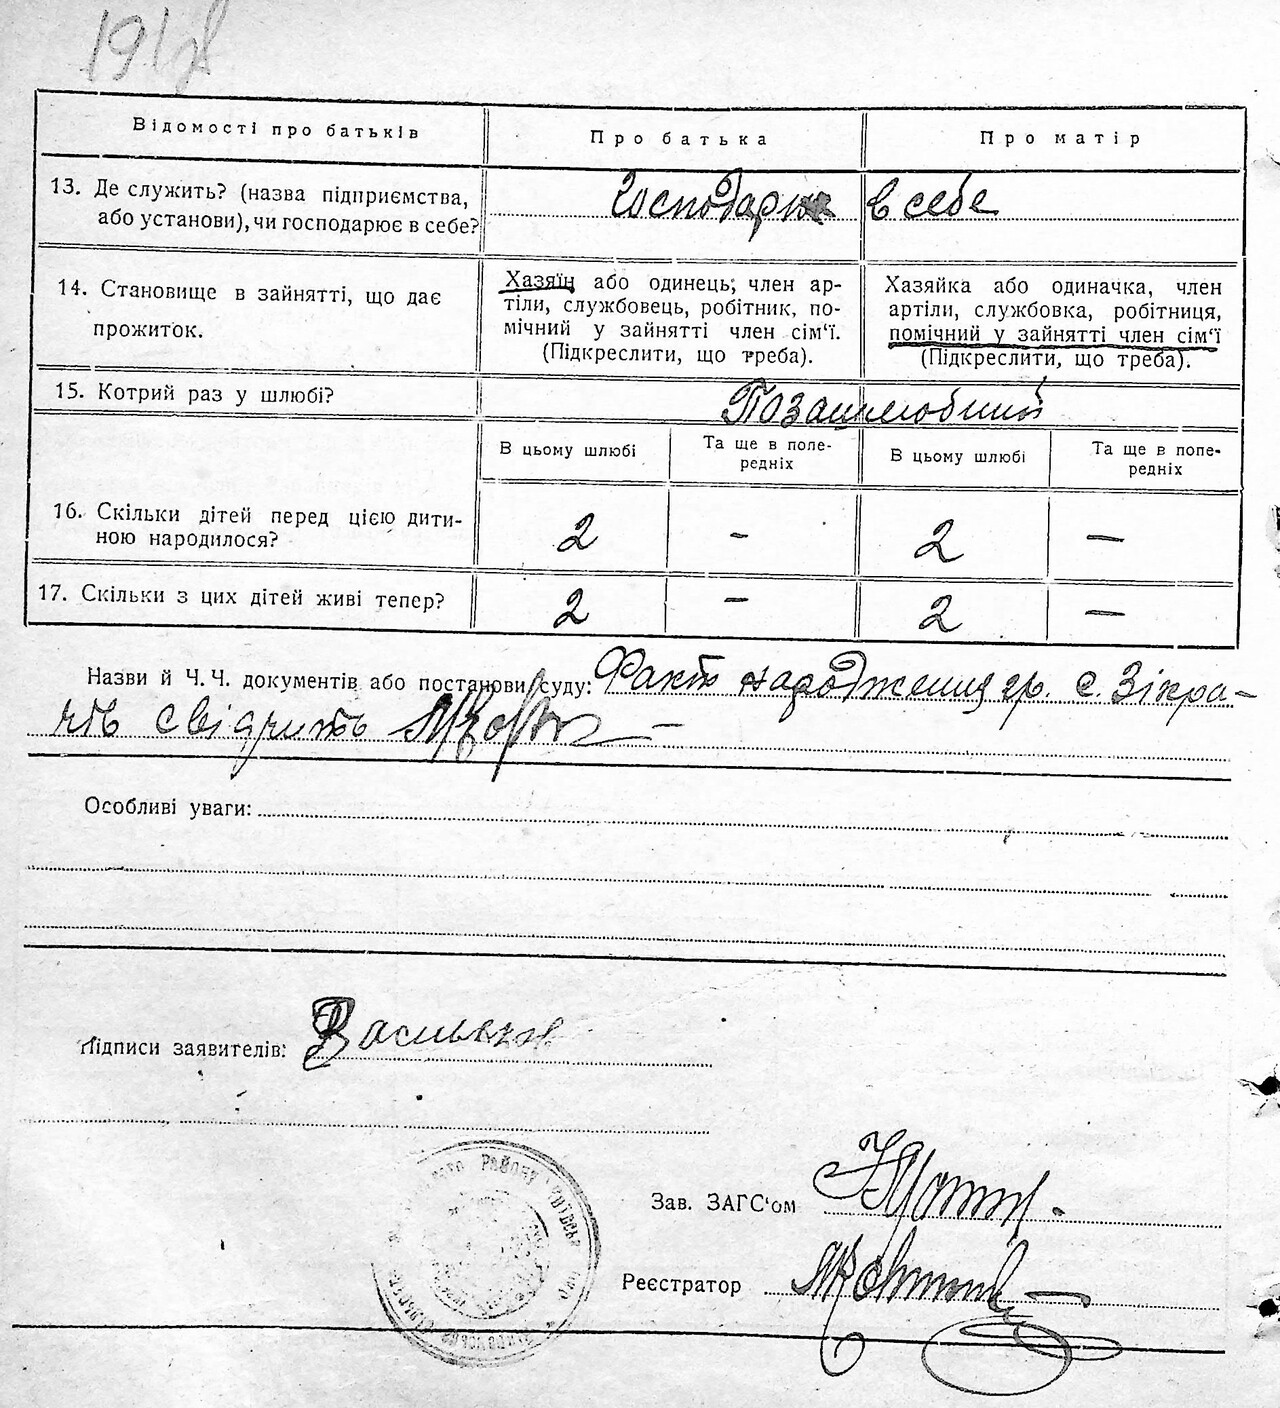 Відомості про батьків
Про батька
Про матір
13. Де служить? (назва підприємства,
або установи), чи господарює в себе?
Господарює в себе
14. Становище в зайнятті, що дає
прожиток.
Хазяїн або одинець, член ар-
тіли, службовець, робітник, по-
мічний у зайнятті член сім‘ї.
(Підкреслити, що треба).
Хазяйка або одиначка, член
артіли, службовка, робітниця,
помічний у зайнятті член сім‘ї
(Підкреслити, що треба).
15. Котрий раз у шлюбі?
Позашлюбний
В цьому шлюбі
Та ще в попе-
редніх
В цьому шлюбі
Та ще в попе-
редніх
16. Скільки дітей перед цією дити-
ною народилося?
2 – 2 –
17. Скільки з цих дітей живі тепер?
2 – 2 –
Назви й Ч. Ч. документів або постанови суду: Факт народження гр. с. Зікра-
чів свідчить
Особливі уваги:
Підписи заявителів:
Району
Зав. ЗАГС‘ом
Реєстратор